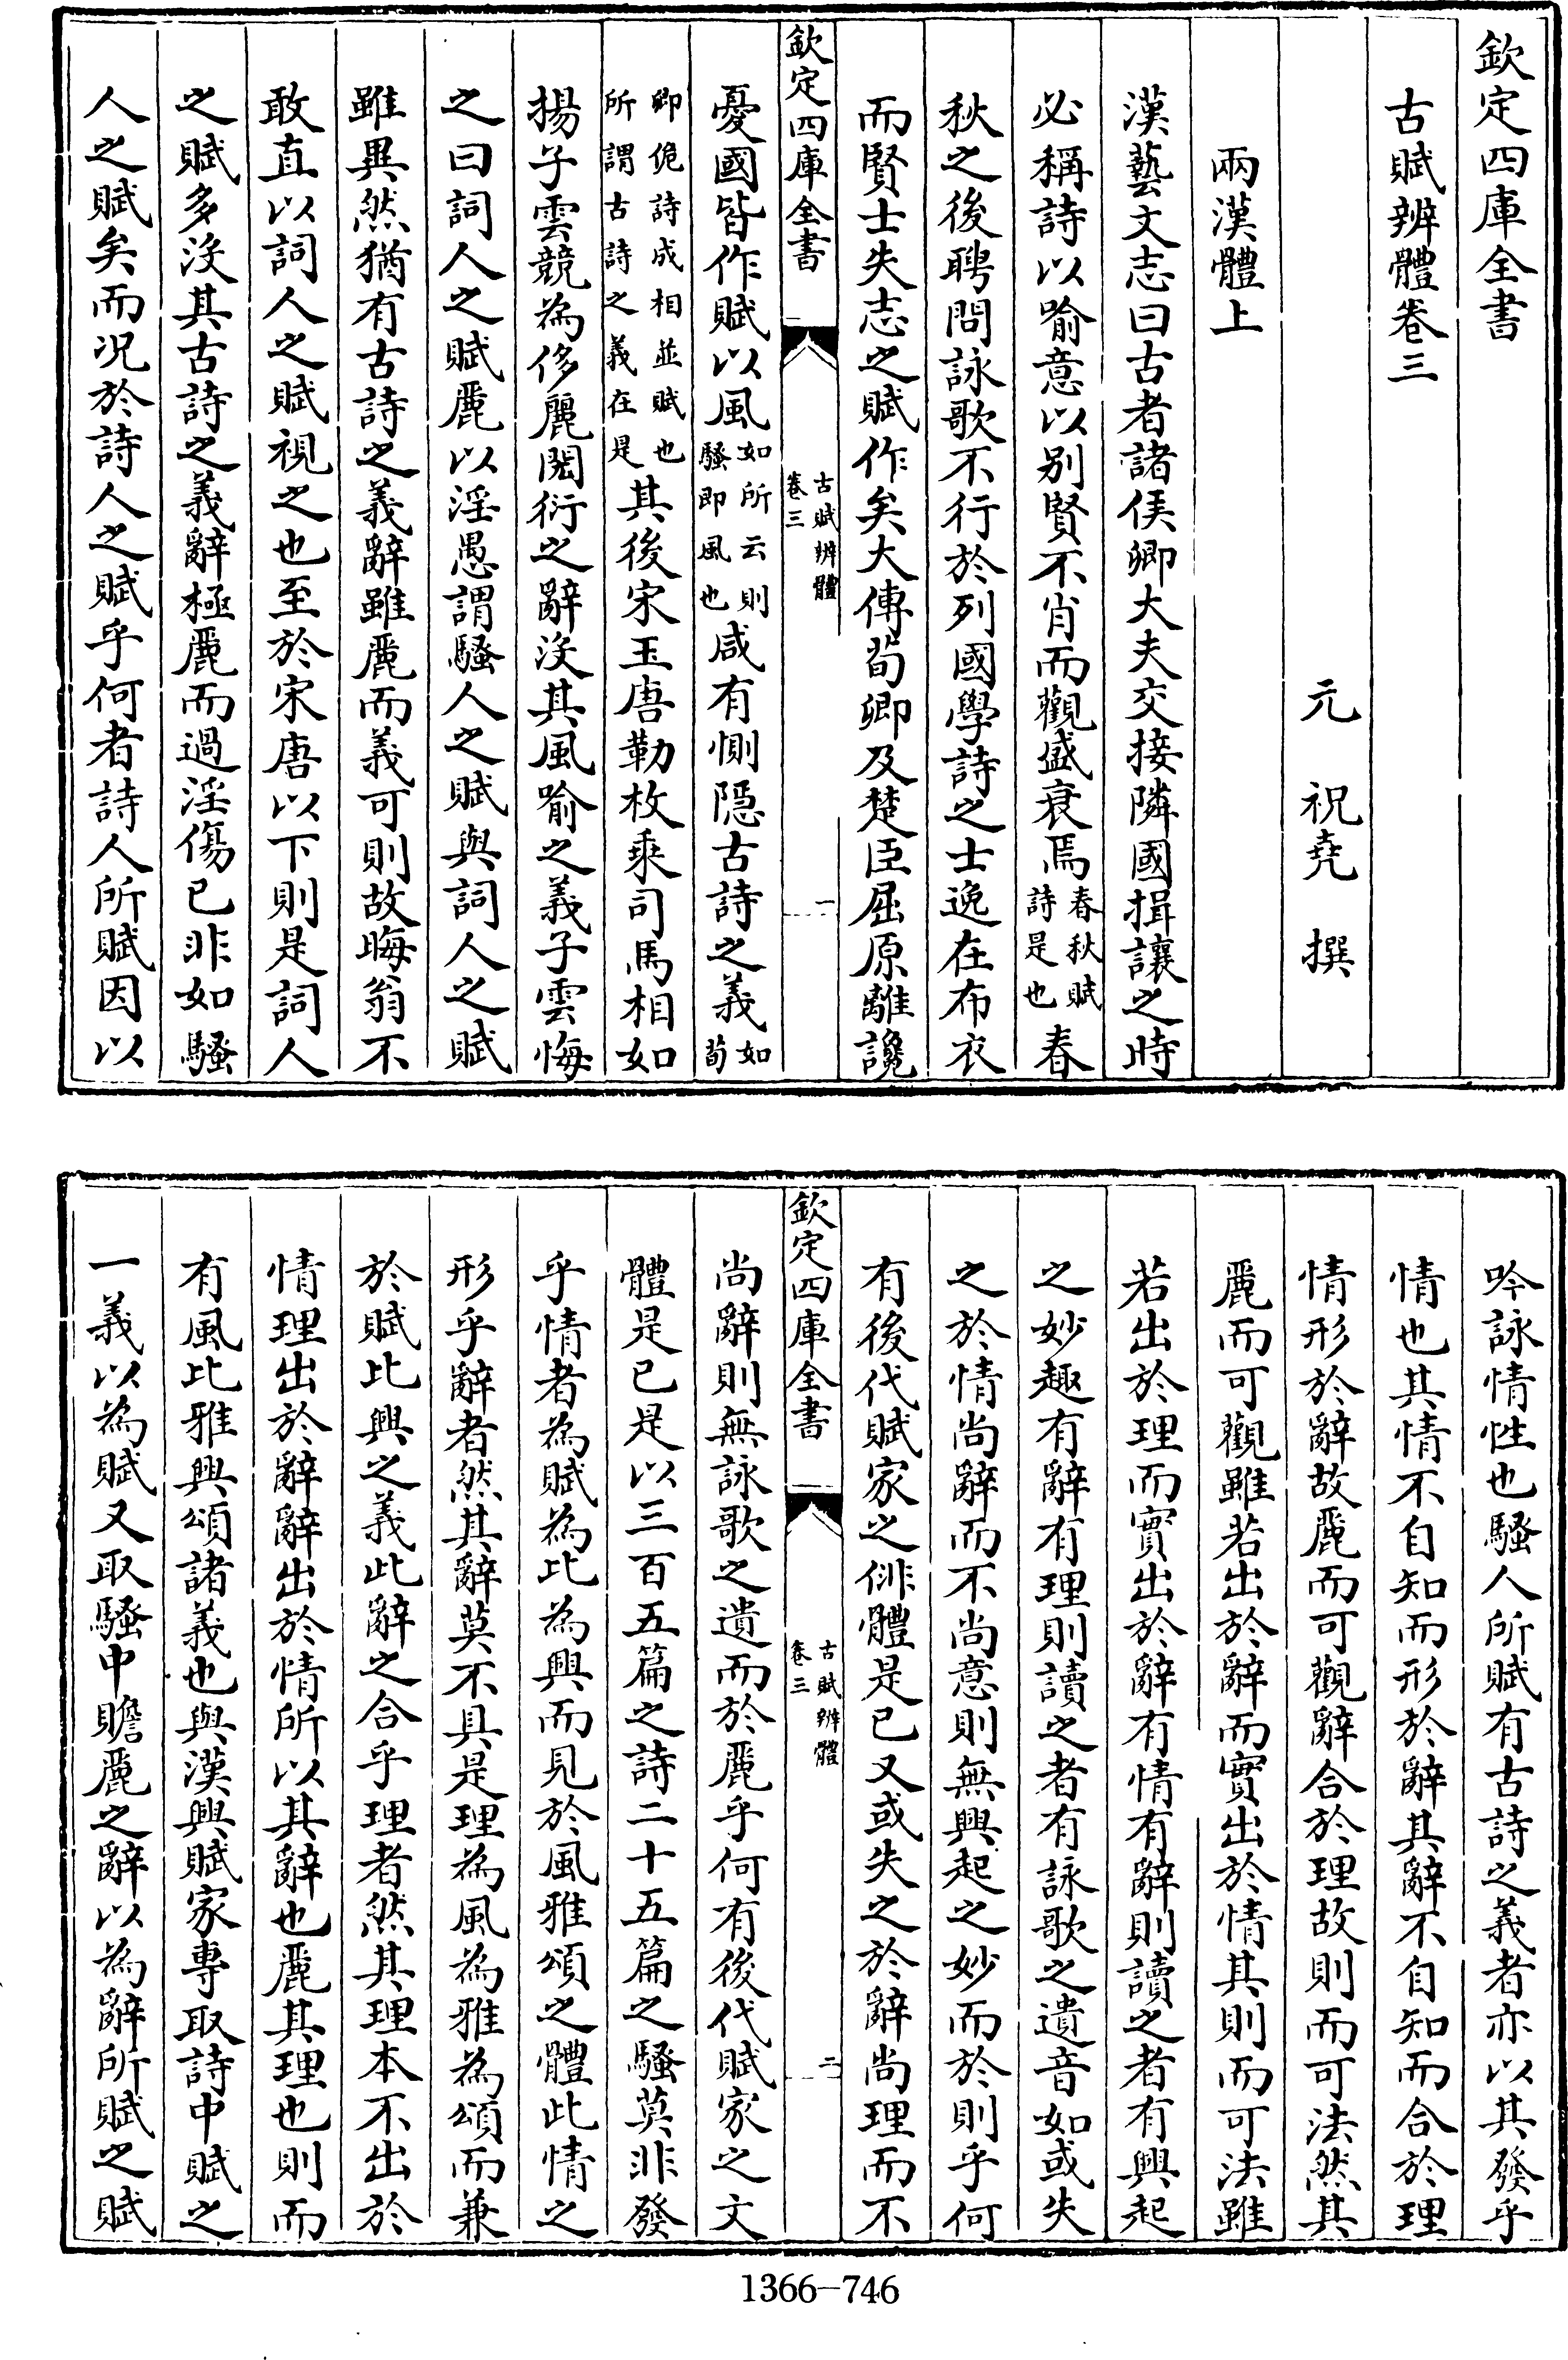 欽定四庫全書
古賦辨體卷三
元　祝堯　撰
兩漢體上
漢藝文志曰古者諸侯卿大夫交接隣國揖讓之時
必稱詩以喻意以别賢不肖而觀盛衰焉春秋賦詩是也春
秋之後聘問詠歌不行於列國學詩之士逸在布衣
而賢士失志之賦作矣大傳荀卿及楚臣屈原離讒
欽定四庫全書　古賦辨體卷三　一
憂國皆作賦以風如所云則騷即風也咸有惻隱古詩之義如荀
卿佹詩成相並賦也所謂古詩之義在是其後宋玉唐勒枚乘司馬相如
揚子雲競為侈麗閎衍之辭沒其風喻之義子雲悔
之曰詞人之賦麗以淫愚謂騷人之賦與詞人之賦
雖異然猶有古詩之義辭雖麗而義可則故晦翁不
敢直以詞人之賦視之也至於宋唐以下則是詞人
之賦多沒其古詩之義辭極麗而過淫傷已非如騷
人之賦矣而况於詩人之賦乎何者詩人所賦因以
吟詠情性也騷人所賦有古詩之義者亦以其發乎
情也其情不自知而形於辭其辭不自知而合於理
情形於辭故麗而可觀辭合於理故則而可法然其
麗而可觀雖若出於辭而實出於情其則而可法雖
若出於理而實出於辭有情有辭則讀之者有興起
之妙趣有辭有理則讀之者有詠歌之遺音如或失
之於情尚辭而不尚意則無興起之妙而於則乎何
有後代賦家之俳體是已又或失之於辭尚理而不
欽定四庫全書　古賦辨體卷三　二
尚辭則無詠歌之遺而於麗乎何有後代賦家之文
體是已是以三百五篇之詩二十五篇之騷莫非發
乎情者為賦為比為興而見於風雅頌之體此情之
形乎辭者然其辭莫不具是理為風為雅為頌而兼
於賦比興之義此辭之合乎理者然其理本不出於
情理出於辭辭出於情所以其辭也麗其理也則而
有風比雅興頌諸義也與漢興賦家專取詩中賦之
一義以為賦又取騷中贍麗之辭以為辭所賦之賦
1366-746